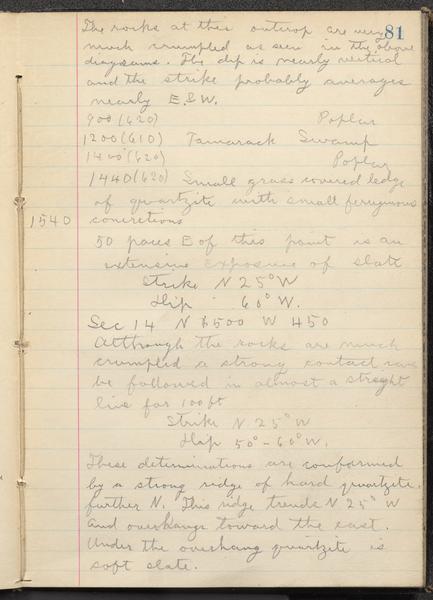 81
The rocks at this outcrop are very
much crumpled as seen in the above
diagrams. The dip is nearly vertical
and the strike probably averages
nearly E. & W.
900 (620) Poplar
1200 (610) Tamarack Swamp
1400 (620) Poplar
1440 (620) Small grass covered ledge
of quartzite with small ferruginous
1540 concretions
50 paces E of this point is an
extensive exposure of slate
Strike N 25° W
Dip 60° W.
Sec 14 N 1500 W 450
Although the rocks are much
crumpled a strong contact can
be followed in almost a streght
line for 100 ft
Strike N. 25° W
Dip 50° - 60° W.
These determinations are conformed
by a strong ridge of hard quartzite
further N. This ridge trends N 25° W
and overhangs toward the east.
Under the overhang quartzite is
soft slate.